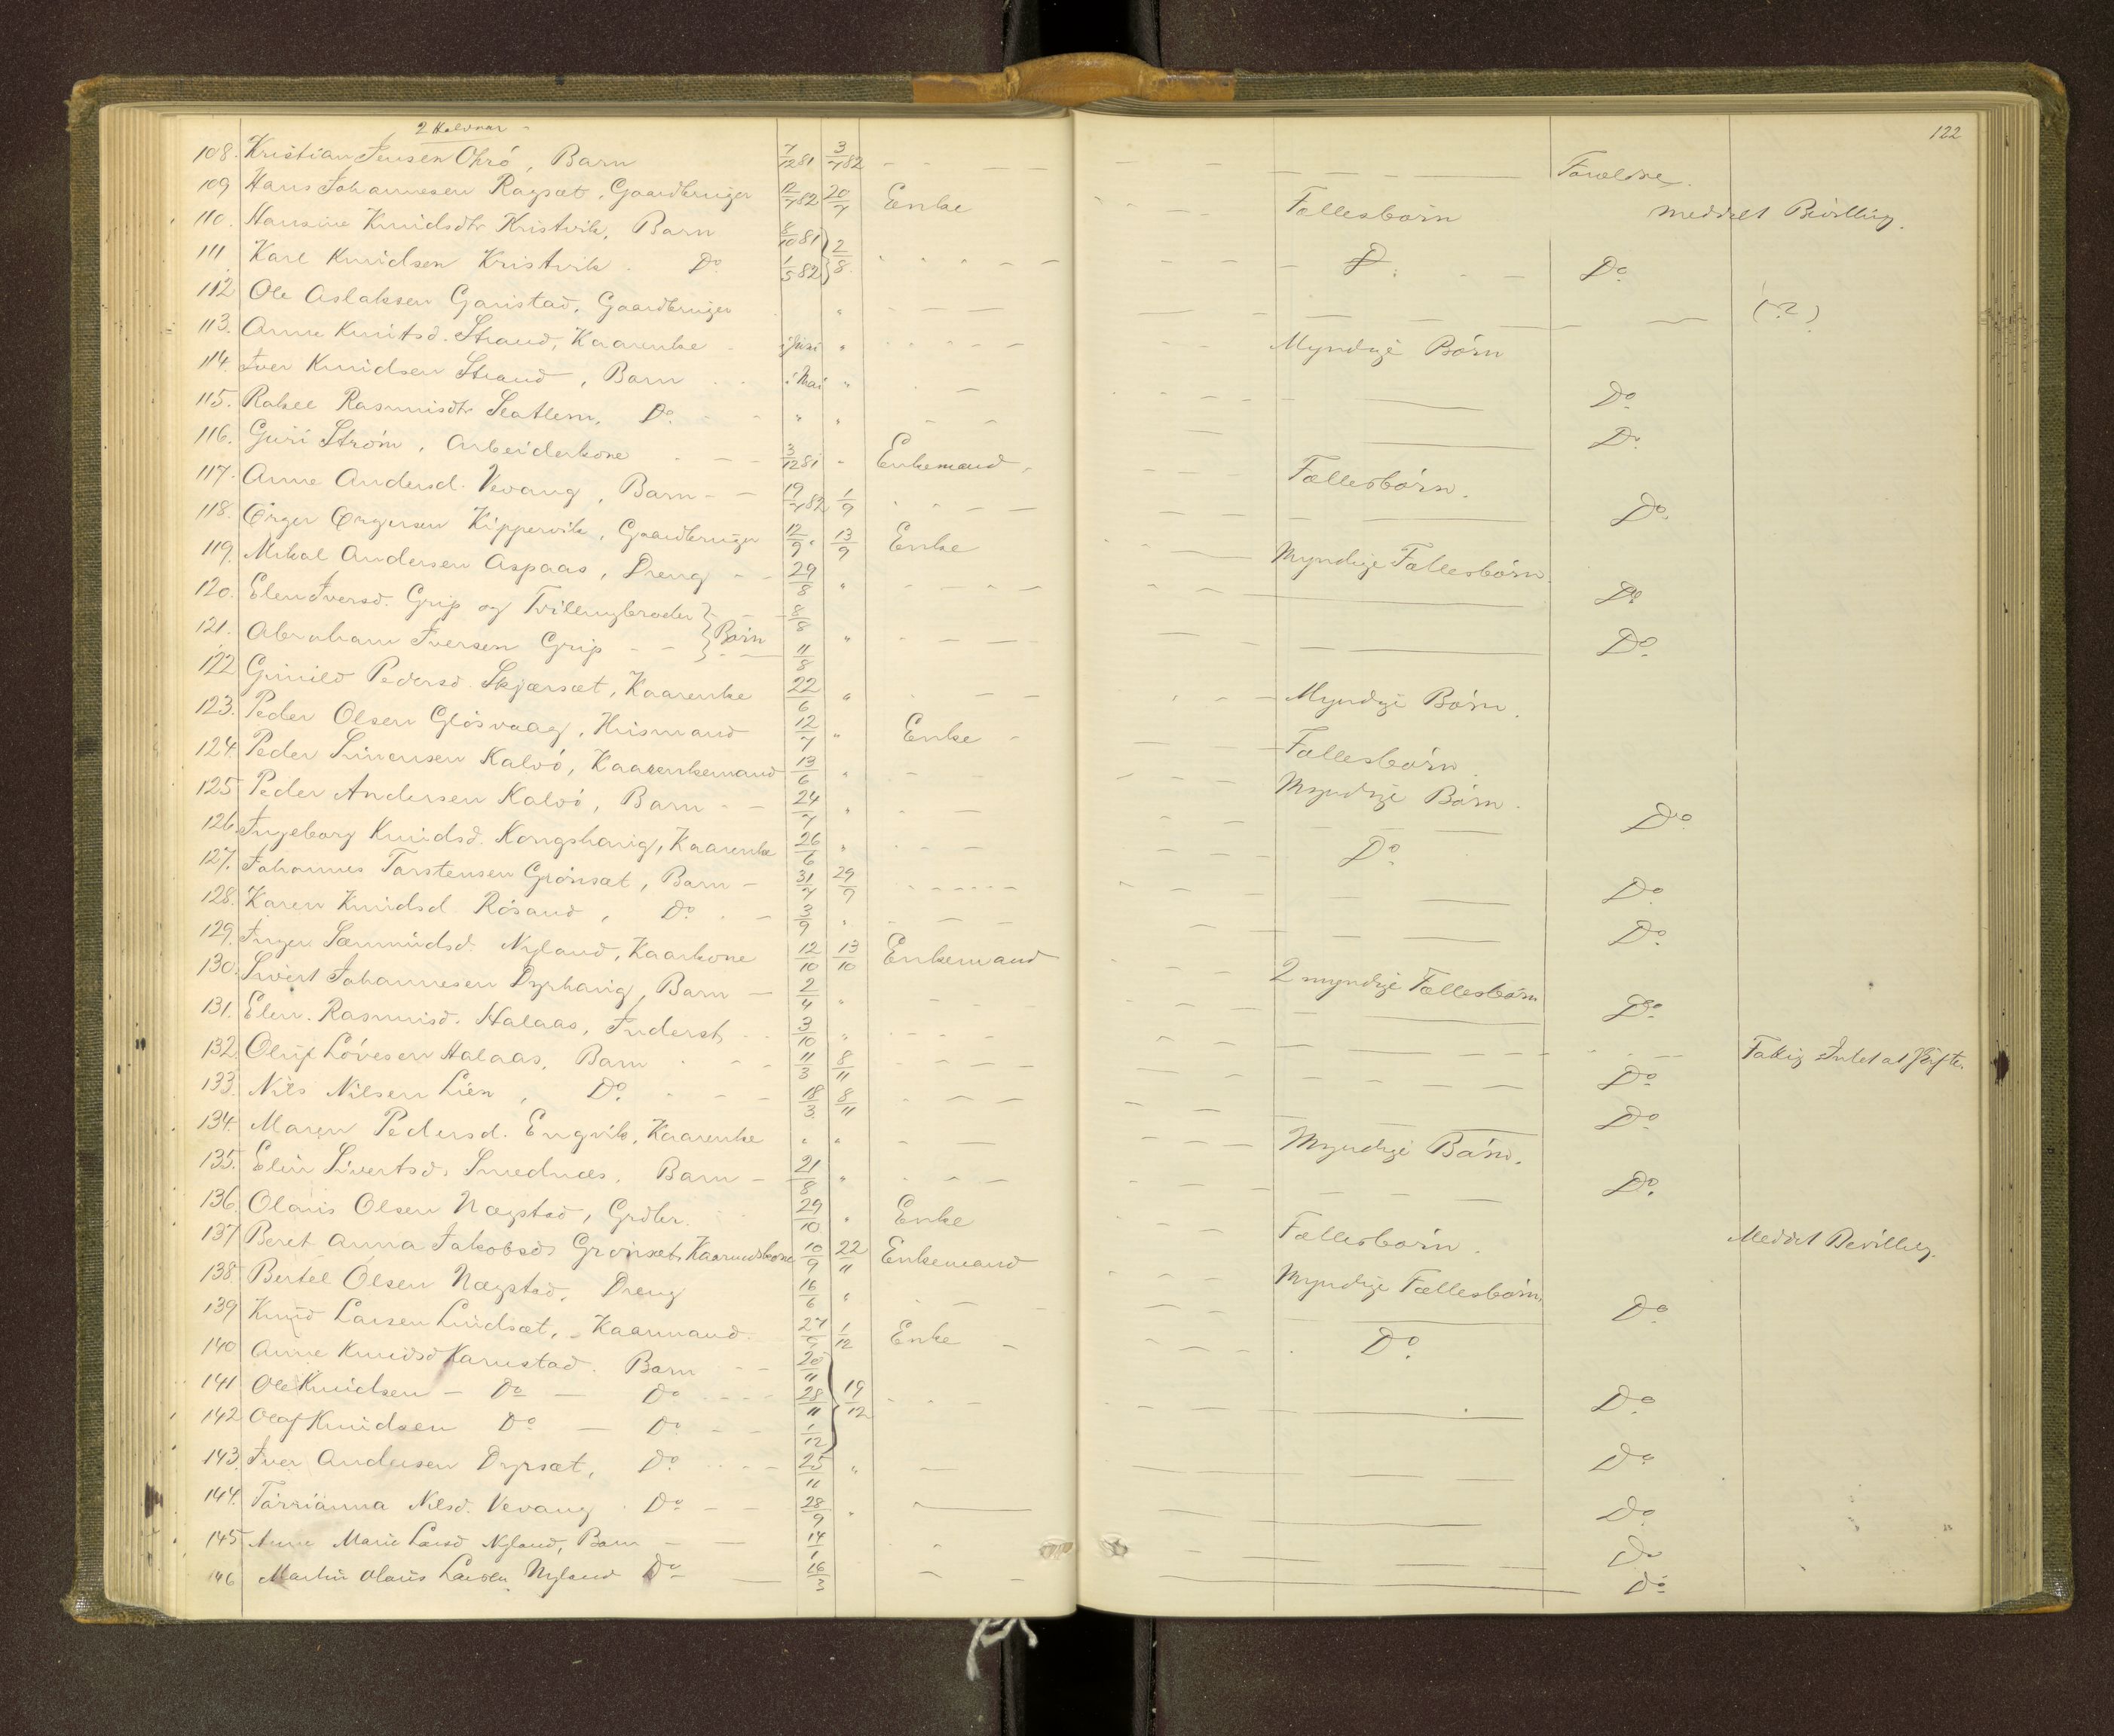 122
2 Halvaar
108. Kristian Jensen Ohrö, Barn 7/12 81 3/7 82 Forældre.
109 Hans Johannesen Røgsæt, Gaardbruger 12/7 82 20/7 Enke Fællesbörn meddelt Bevilling.
110. Hansine Knudsdtr Kristvik, Barn 8/10 81 2/8
111 Karl Knudsen Kristvik. Do 1/5 82 Do
112 Ole Aslaksen Garistad, Gaardbruger " (?)
113. Anne Knutsd. Strand, Kaarenke i Juni " Myndige Börn
114. Iver Knudsen Strand, Barn i Mai " Do
115. Rakel Rasmusdtr Slatlem, Do. " " Do
116. Guri Ström, Arbeiderkone 3/12 81 " Enkemand Fællesbörn.
117. Anne Andersd. Vevang, Barn 19/7 82 1/9 Do.
118. Örger Örgersen Kippervik, Gaardbruger 12/9 " 13/9 Enke Myndige Fællesbörn
119. Mikal Andersen Aspaas, Dreng 29/8 " Do
120. Elen Iversd. Grip og Tvillingbroder } 8/8
121. Abraham Iversen Grip } Börn 11/8 " Do.
122 Gunild Pedersd. Skjærsæt, Kaarenke 22/6 " Myndige Börn.
123. Peder Olsen Glösvaag, Husmand 12/7 " Enke Fællesbörn
124. Peder Simensen Kalvö, Kaarenkemand 13/6 " Myndige Börn.
125 Peder Andersen Kalvö, Barn 24/7 " Do
126. Ingeborg Knudsd. Kongshaug, Kaarenke 26/6 " Do.
127. Johannes Torstensen Grönsæt, Barn 31/7 29/9 Do
128. Karen Knudsd Rösand, Do. 3/9 " Do.
129. Inger Sæmundsd. Nyland, Kaarkone 12/10 13/10 Enkemand 2 myndige Fællesbörn
130. Sivert Johannesen Dyrhaug, Barn 2/4 " Do.
131. Elen. Rasmusd. Halaas, Inderst 3/10 " Fattig Intet at Skifte.
132. Oluf Lövesen Halaas, Barn 11/3 8/11 Do
133. Nils Nilsen Lien, Do. 18/3 8/11 Do
134. Maren Pedersd. Engvik, Kaarenke " " Myndige Börn.
135. Elen Sivertsd. Smednæs, Barn 21/8 " Do.
136. Olaus Olsen Nægstad, Grdbr. 29/10 " Enke Fællesbörn. Meddelt Bevilling.
137 Beret Anna Jakobsd. Grönsæt, Kaarmdskone 10/9 22/11 Enkemand Myndige Fællesbörn.
138. Bertel Olsen Nægstad, Dreng 16/6 " Do
139 Knud Larsen Lindsæt, Kaarmand. 27/9 1/12 Enke Do.
140 Anne Knudsd Karnstad. Barn 20/11
141 Ole Knudsen Do Do 28/11 19/12 Do
142 Olaf Knudsen Do Do 1/12
143. Iver Andersen Dyrsæt, Do 25/11 " Do
144. Torrianna Nilsd. Vevang. Do 28/9 " Do
145 Anne Marie Larsd Nyland, Barn 14/1 Do
146 Martin Olaus Larsen Nyland Do 16/3 Do